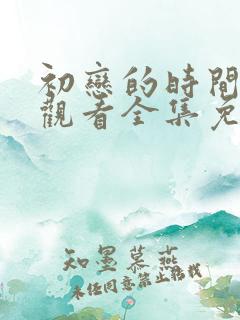 初戀的時間
觀看全集免
知墨慕燕
未经同意禁止转载